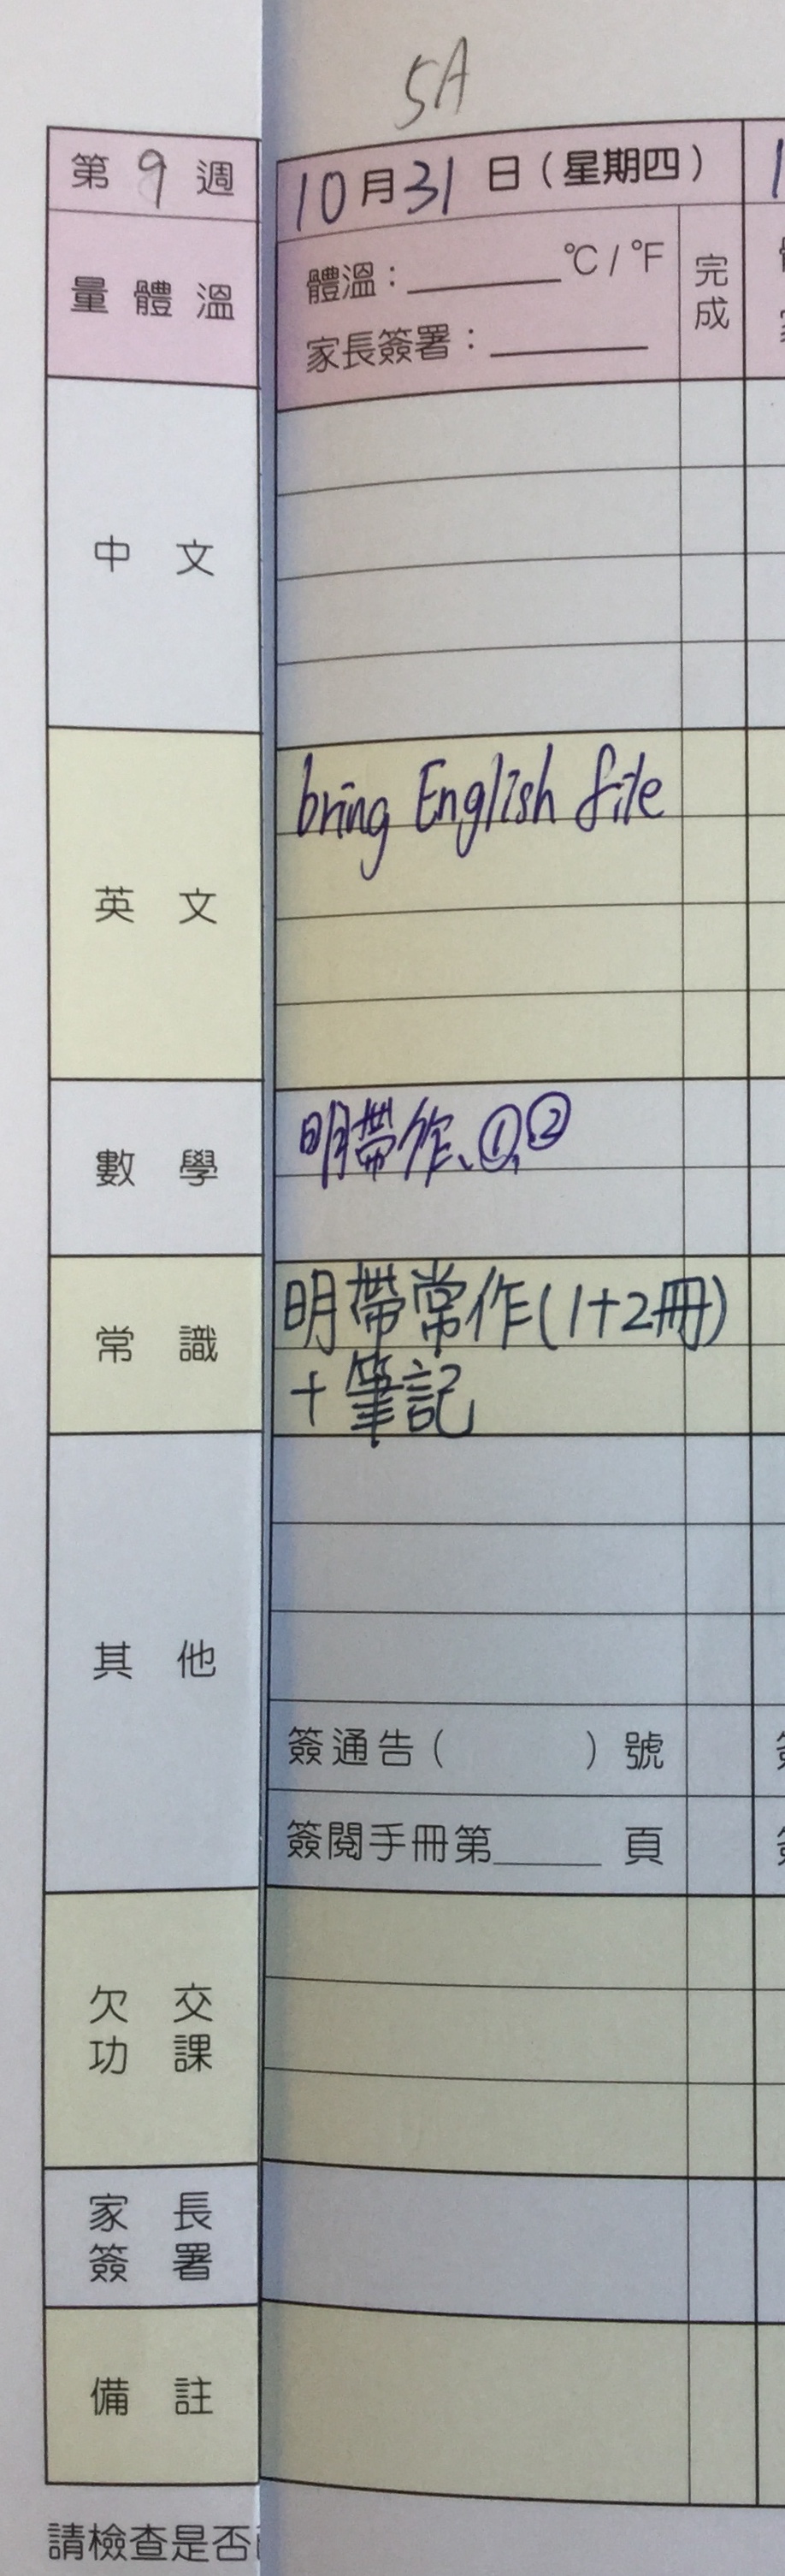 5A
第 9 週
10月31日(星期四)
量體溫
體溫:______°C / °F
家長簽署:______
完成
中文
英文
bring English file
數學
明帶作、①,②
常識
明帶常作(1+2冊)
+筆記
其他
簽通告( )號
簽閱手冊第_____頁
欠交
功課
家長
簽署
備註
請檢查是否